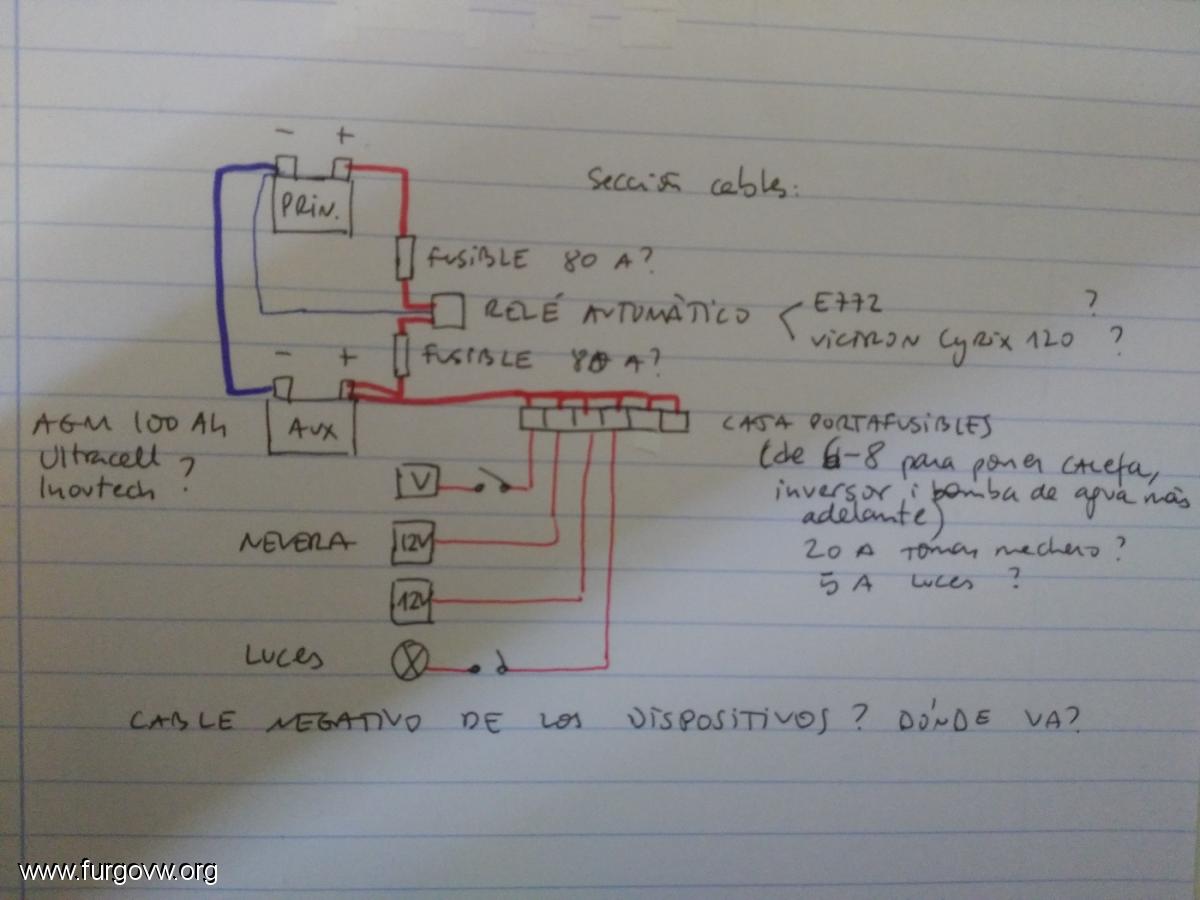 - +
PRIN.
Sección cables:
FUSIBLE 80 A?
RELÉ AUTOMÀTICO
E772 ?
VICTRON CyRix 120 ?
FUSIBLE 80 A?
- +
AUX
AGM 100 Ah
Ultracell
Inovtech ?
CAJA PORTAFUSIBLES
(de 6-8 para poner CALEFA,
inversor i bomba de agua más
adelante)
20 A Tomas mechero?
5 A Luces ?
V
NEVERA 12V
12V
LUCES
CABLE NEGATIVO DE LOS DISPOSITIVOS? DÓNDE VA?
www.furgovw.org